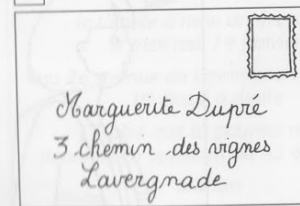 Marguerite Dupré
3 chemin des vignes
Lavergnade